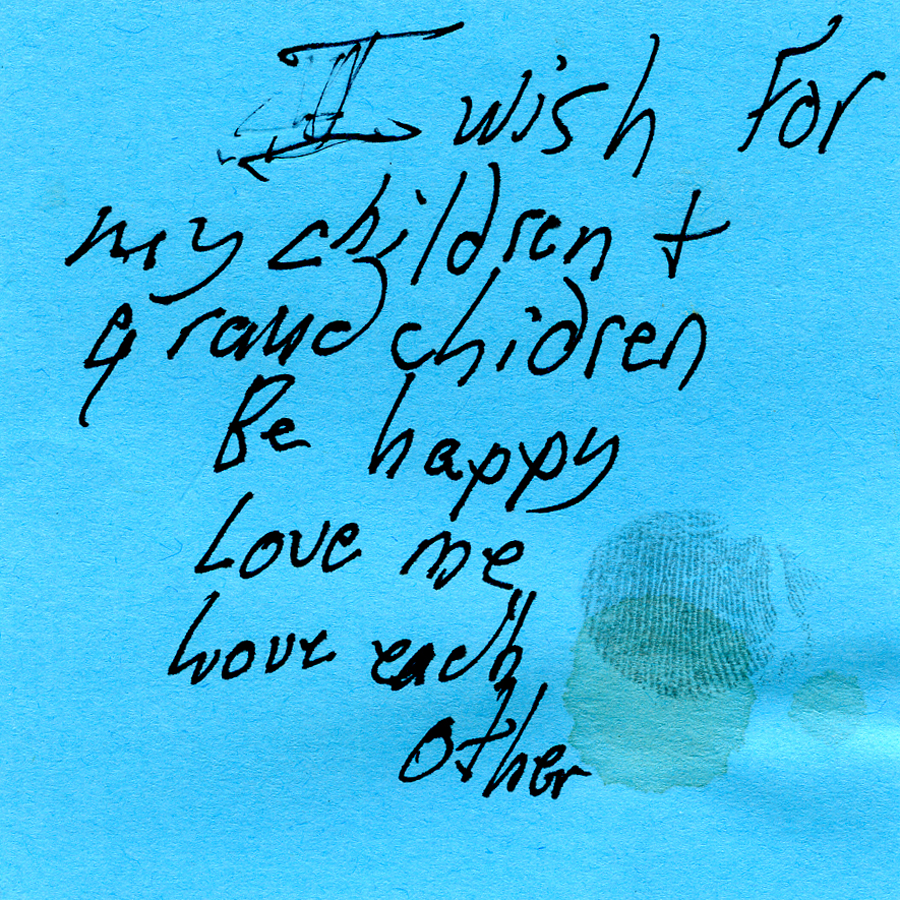 I wish For
my children +
grand chidren
Be happy
Love me
Love each
other